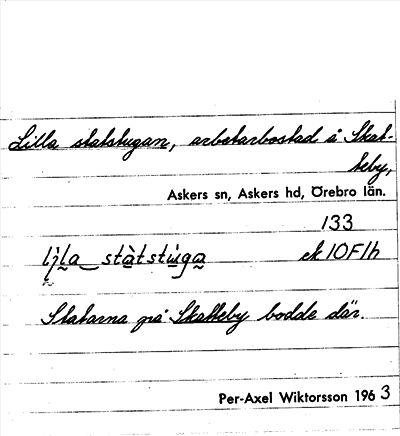 Lilla statstugan, arbetarbostad å Skat-
teby,
Askers sn, Askers hd, Örebro län.
133
ek 10F1h
Statarna på Skatteby bodde där.
Per-Axel Wiktorsson 1963